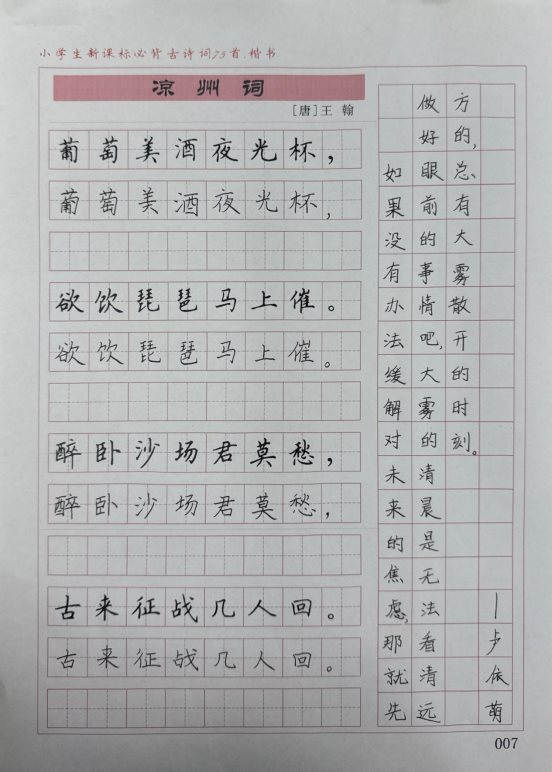 小学生新课标必背古诗词75首·楷书
凉州词
[唐]王 翰
葡萄美酒夜光杯，
葡萄美酒夜光杯，
欲饮琵琶马上催。
欲饮琵琶马上催。
醉卧沙场君莫愁，
醉卧沙场君莫愁，
古来征战几人回。
古来征战几人回。
如果没有办法缓解对未来的焦虑，那就先
做好眼前的事情吧，大雾的清晨是无法看清远
方的，总有大雾散开的时刻。
—步依萌
007